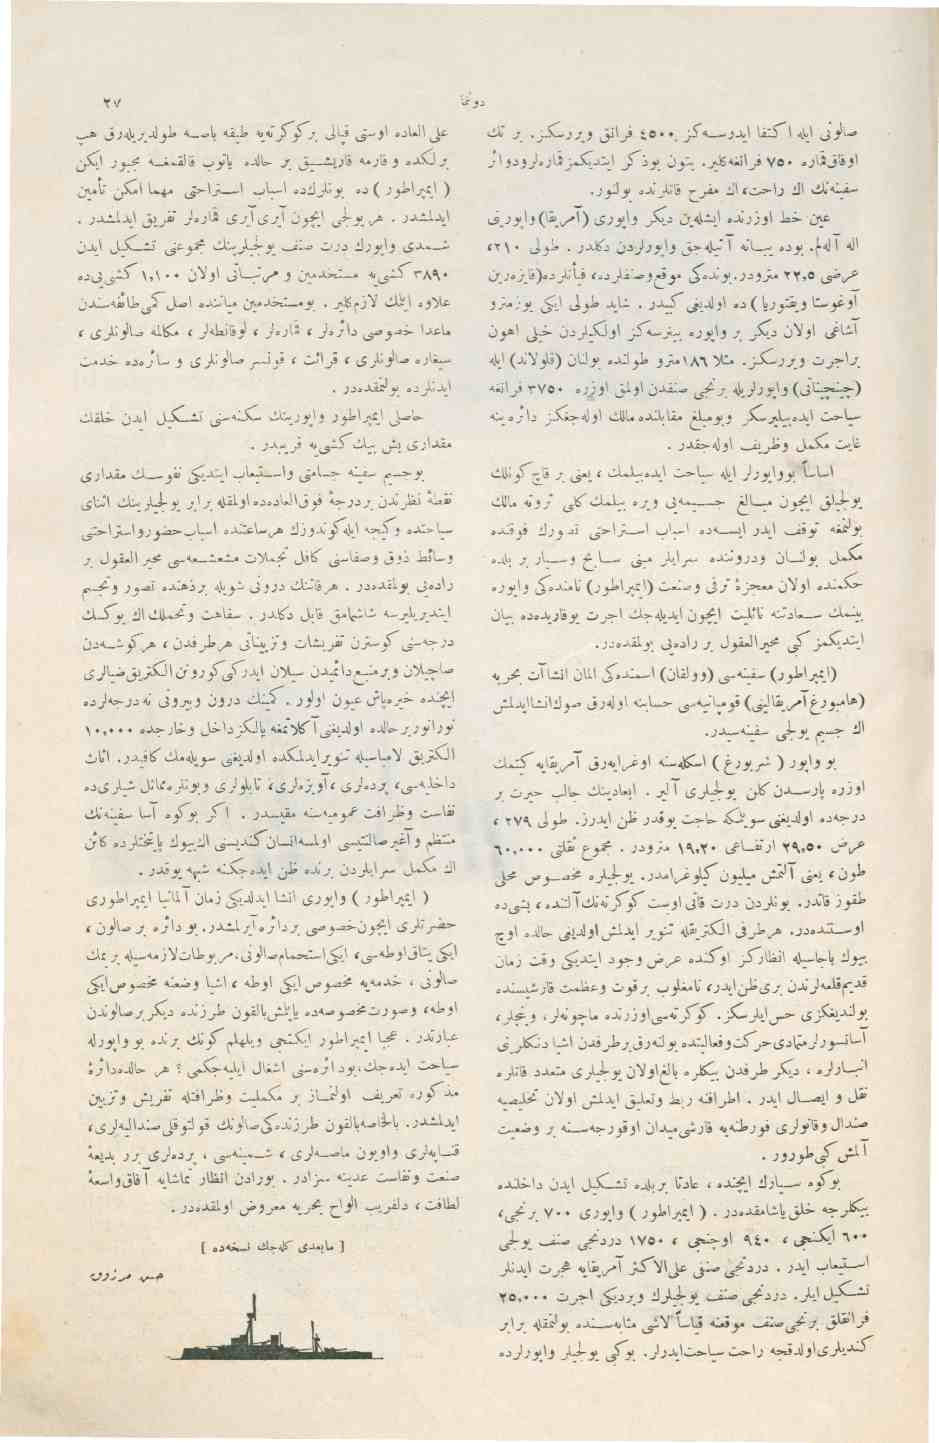 ٢٧
دونما
صالونی ایله اکتفا ایدرسه‌کز ٤٥٠٠ فرانق ویررسکز. بر تك
اوفاق قماره ٧٥٠ فرانغه‌کلیر. بتون بوذکر ایتدیکمز قماره‌لرودوائر
سفینه‌نك اك راحت، اك مفرح قاتلرنده بولنور.
عین خط اوزرنده ایشله‌ین دیکر واپوری (آمریقا) واپورینی
اله آله‌لم. بوده یبانه آتیله‌جق واپورلردن دکلدر. طولی ٢١٠،
عرضی ٢٢,٥ مترودر. بونده‌کی موقع وصنفلرده، فیأتلرده (قایزه‌رین
آوغوستا ویقتوریا) ده اولدیغی کبیدر. شاید طولی ایکی یوز مترو
آشاغی اولان دیکر بر واپوره بینرسه‌کز اولکیلردن خیلی اهون
براجرت ویررسکز. مثلا ١٨٦ مترو طولنده بولنان (قلولاند) ایله
(چینچیناتی) واپورلریله برنجی صنفدن اولمق اوزره ٣٧٥٠ فرانغه
سیاحت ایده‌بیلیرسکز وبومبلغ مقابلنده مالك اوله‌جغکز دائره ینه
غایت مکمل وظریف اوله‌جقدر.
اساساً بوواپورلر ایله سیاحت ایده‌بیلمك، یعنی بر قاچ کونلك
یولجیلق ایچون مبالغ جسیمه‌یی ویره بیلمك کلی ثروته مالك
بولنمغه توقف ایدر ایسه‌ده اسباب استراحتی تصورك فوقنده
مکمل بولنان ودروننده سرایلر مبنی سابح وسیار بر بلده
حکمنده اولان معجزۀ ترقی وصنعت (ایمپراطور) نامنده‌کی واپوره
بینمك سعادتنه نائلیت ایچون ایدیله‌جك اجرت یوقاریده‌ده بیان
ایتدیکمز کبی محیرالعقول بر راده‌یی بولمقده‌در.
(ایمپراطور) سفینه‌سی (وولقان) اسمنده‌کی المان انشاآت بحریه
(هامبورغ آمریقالینی) قومپانیه‌سی حسابنه اوله‌رق صوك انشاایدلمش
اك جسیم یولجی سفینه‌سیدر.
بو واپور (شربورغ) اسکله‌سنه اوغرایه‌رق آمریقایه کیتمك
اوزره پارسدن کلن یولجیلری آلیر. ابعادینك جالب حیرت بر
درجه‌ده اولدیغنی سویلمکه حاجت یوقدر ظن ایدرز. طولی ٢٧٩،
عرض ٢٩,٥٠ ارتفاعی ١٩,٢٠ مترودر. مجموع ثقلتی ٦٠,٠٠٠
طون، یعنی آلتمش میلیون کیلوغرامدر. یولجیلره مخصوص محلی
طقوز قاتدر. بونلردن درت قاتی اوست کوکرته‌نك آلتنده، بشی‌ده
اوستنده‌در. هرطرفی الکتریقله تنویر ایدلمش اولدیغی حالده اوچ
بیوك باجاسیله انظارکز اوکنده عرض وجود ایتدیکی وقت زمان
قدیم قلعه‌لرندن بری ظن ایدر، نامغلوب بر قوت وعظمت قارشیسنده
بولندیغکزی حس ایلرسکز. کوکرته‌سی اوزرنده ماچونه‌لر، وینجلر،
آسانسورلر متمادی حرکت وفعالیتده بولنه‌رق برطرفدن اشیا دنکلرینی
انبارلره، دیکر طرفدن بیکلره بالغ اولان یولجیلری متعدد قاتلره
نقل و ایصال ایدر. اطرافنه ربط وتعلیق ایدلمش اولان تخلیصیه
صندال وقاتولری فورطنه‌یه قارشی میدان اوقورجه‌سنه بر وضعیت
آلمش کبی طورور.
بوکوه سیارك ایچنده، عادتا بربلده تشکیل ایدن داخلنده
بیکلرجه خلق یاشامقده‌در. (ایمپراطور) واپوری ٧٠٠ برنجی،
٦٠٠ ایکنجی، ٩٤٠ اوچنجی، ١٧٥٠ دردنجی صنف یولجی
استیعاب ایدر. دردنجی صنفی علی‌الاکثر آمریقایه هجرت ایدنلر
تشکیل ایلر. دردنجی صنف یولجیلرك ویردیکی اجرت ٢٥,٠٠٠
فرانقلق برنجی صنف موقعنه قیاساً لاشی مثابه‌سنده بولنمقله برابر
کندیلری اولدقجه راحت سیاحت ایدرلر. بوکبی یولجیلر واپورلرده
علی العاده اوستی قپالی بر کوکرته‌یه طبقه باصه طولدیریله‌رق هپ
برلکده و قارمه قاریشیق بر حالده یاتوب قالقمغه مجبور ایکن
(ایمپراطور) ده بونلرك‌ده اسباب استراحتی مهما امکن تأمین
ایدلمشدر. هر یولجی ایچون آیری آیری قماره‌لر تفریق ایدلمشدر.
شمدی واپورك درت صنف یولجیلرینك مجموعنی تشکیل ایدن
٣٨٩٠ کشی‌یه مستخدمین و مرتباتی اولان ١,١٠٠ کشی‌یی‌ده
علاوه ایتمك لازم‌کلیر. بومستخدمین میاننده اصل کمی طائفه‌سندن
ماعدا خصوصی دائره‌لر، قماره‌لر، لوقانطه‌لر، مکالمه صالونلری،
سیغاره صالونلری، قرائت، قونسر صالونلری و سائره‌ده خدمت
ایدنلرده بولنمقده‌در.
حاصلی ایمپراطور واپورینك سکنه‌سنی تشکیل ایدن خلقك
مقداری بش بیك کشی‌یه قریبدر.
بوجسیم سفینه جسامتی واستیعاب ایتدیکی نفوسك مقداری
نقطۀ نظرندن بردرجۀ فوق‌العاده‌ده اولمقله برابر یولجیلرینك اثنای
سیاحتده وکیجه ایله کوندوزك هرساعتنده اسباب حضورواستراحتی
وسائط ذوق وصفاسنی کافل تجملات مشعشعه‌سی محیر العقول بر
راده‌یی بولمقده‌در. هرقاتنك درونی شویله برذهنده تصور وتجسم
ایتدیریلیرسه شاشمامق قابل دکلدر. سفاهت وتجملك اك یوکسك
درجه‌سنی کوسترن تفریشات وتزییناتی هرطرفدن، هرکوشه‌دن
صاچیلان وبرمنبع دائمیدن سیلان ایدرکبی کورونن الکتریق ضیالری
ایچنده خیره‌پاش عیون اولور. کمینك درون وبیرونی نه درجه‌لرده
نورانوربر حالده اولدیغنی آکلاتمغه یالکز داخل وخارجده ١٠,٠٠٠
الکتریق لامباسیله تنویرایدلمکده اولدیغنی سویله‌مك کافیدر. اثاث
داخلیه‌سی، پرده‌لری، آویزه‌لری، تابلولری وبونلره مماثل شیلری‌ده
نفاست وظرافت عمومیه‌سنه مقیسدر. اکر بوکوه آسا سفینه‌نك
منتظم وآغیر صالنتیسی اولمسه انسان کندیسنی اك بیوك پایتختلرده کائن
اك مکمل سرایلردن برنده ظن ایده‌جکنه شبهه یوقدر.
(ایمپراطور) واپوری انشا ایدلدیکی زمان آلمانیا ایمپراطوری
حضرتلری ایچون خصوصی بردائره آیرلمشدر. بودائره بر صالون،
ایکی یتاق اوطه‌سی، ایکی استحمام صالونی، مربوطات لازمه‌سیله بریمك
صالونی، خدمه‌یه مخصوص ایکی اوطه، اشیا وضعنه مخصوص ایکی
اوطه، وصورت مخصوصه‌ده یاپلمش بالقون طرزنده دیکر برصالوندن
عبارتدر. عجبا ایمپراطور ایکنجی ویلهلم کونك برنده بو واپورله
سیاحت ایده‌جك، بودائره‌سنی اشغال ایلیه‌جکمی؟ هر حالده دائرۀ
مذکوره تعریف اولنماز بر مکملیت وظرافتله تفریش وتزیین
ایدلمشدر. بالخاصه بالقون طرزنده‌کی صالونك قولتوقلی صندالیه‌لری،
قنابه‌لری واویون ماصه‌لری، شمینه‌سی، پرده‌لری برر بدیعۀ
صنعت ونفاست عدینه سزادر. بورادن انظار تماشایه آفاق واسعۀ
لطافت، دلفریب الواح بحریه معروض اولمقده‌در.
[مابعدی کله‌جك نسخه‌ده]
حسن مرزوق